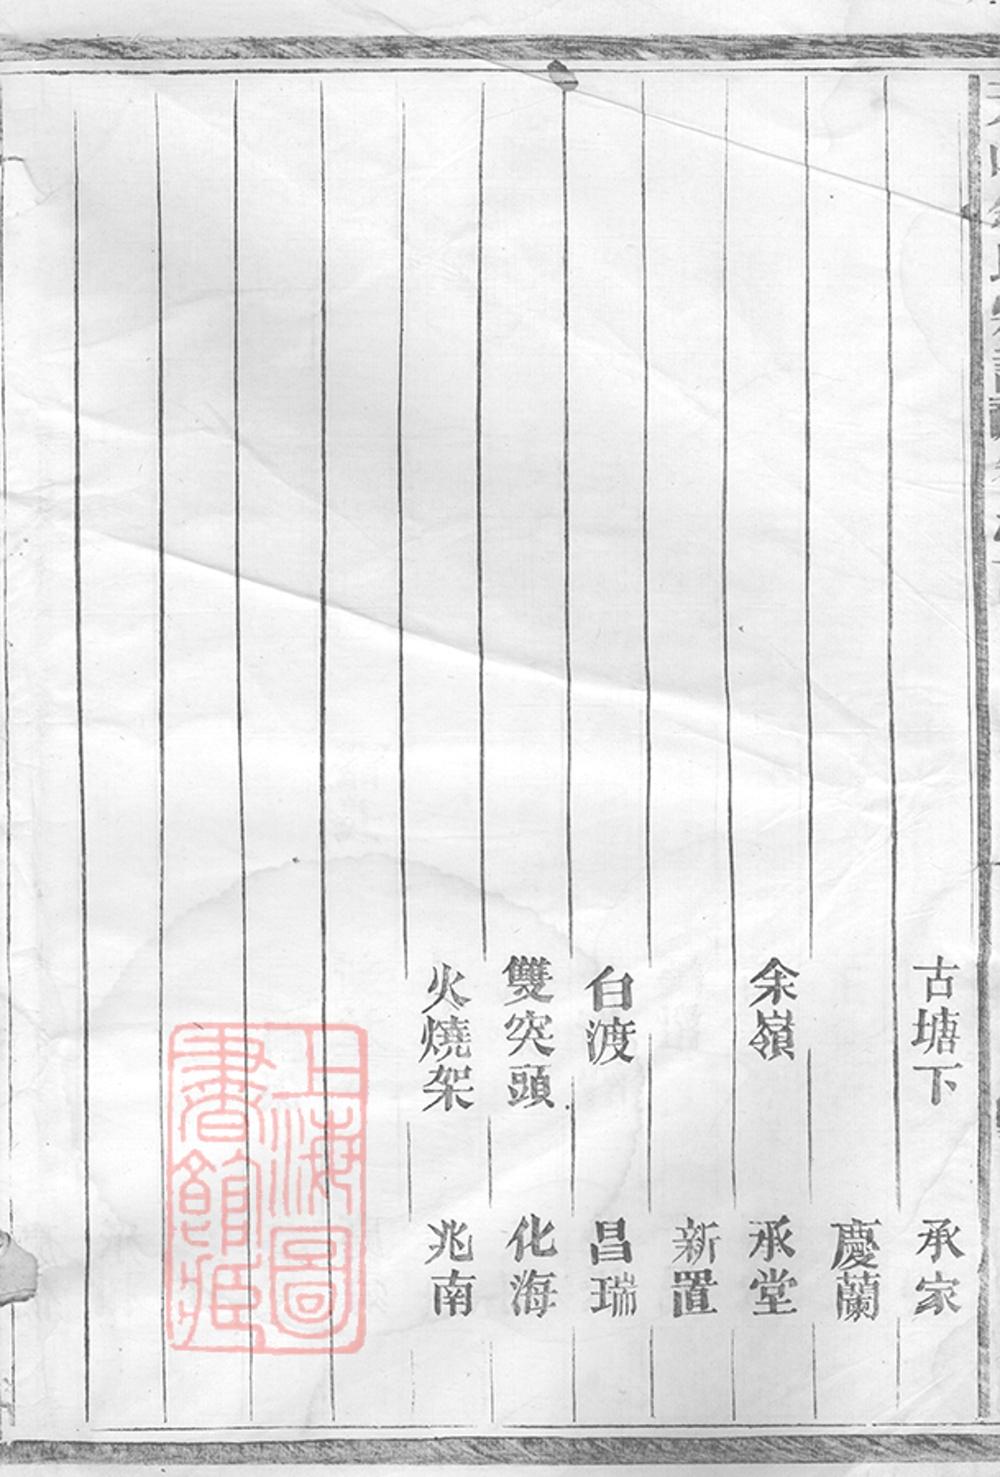 古塘下 承家
慶蘭
余嶺 承堂
新置
白渡 昌瑞
雙突頭 化海
火燒架 兆南
上海圖
書館藏